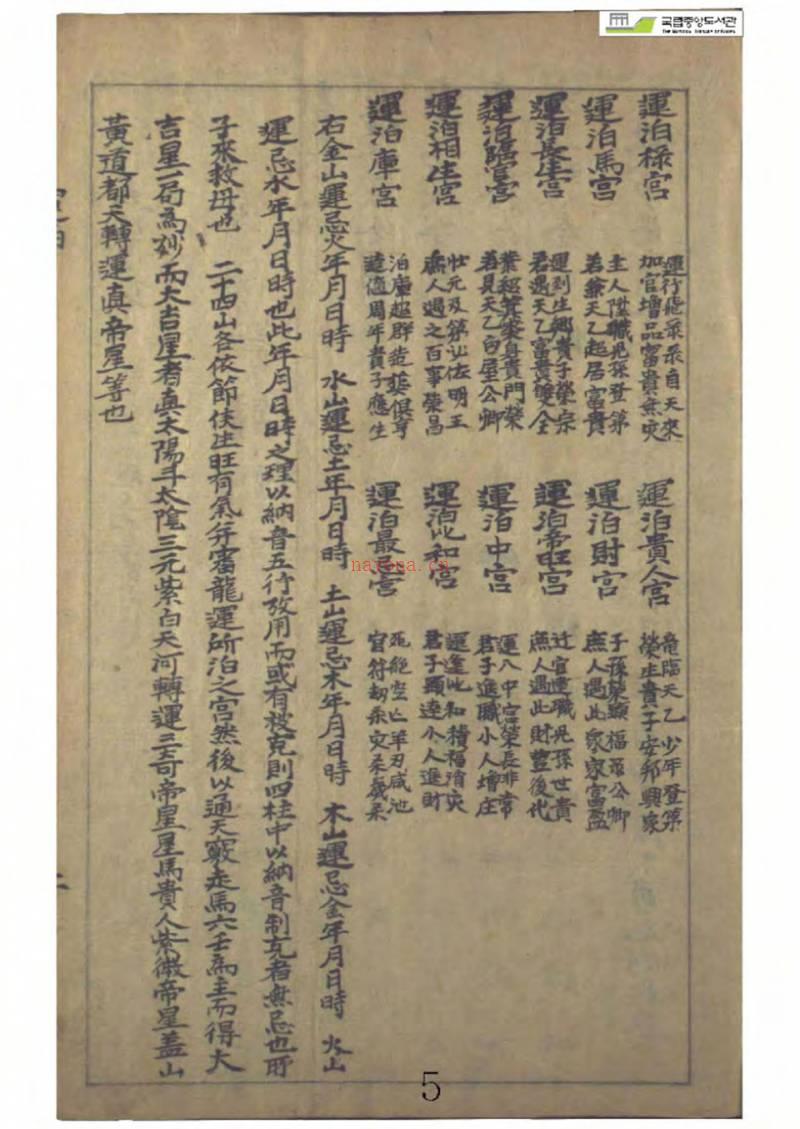 국립중앙도서관
THE NATIONAL LIBRARY OF KOREA
運泊祿宮 運行飛來來自天來 加官增品富貴無灾 運泊貴人宮 竜臨天乙少年登第 榮生貴子安邦興家
運泊馬宮 主人陞職児孫登第 若兼天乙起居富貴 運泊財宮 子孫榮顯福承公卿 庶人遇此家家富盈
運泊長生宮 運到生鄉貴子榮宗 君遇天乙富貴雙全 運泊帝旺宮 迁官進職児孫世貴 庶人遇此財豊後代
運泊臨官宮 業紹箕裘身貴門榮 若見天乙白屋公卿 運泊中宮 運入中宮榮長非常 君子進職小人增庄
運泊相生宮 壯元及第必佐明王 庶人遇之百事榮昌 運泊比和宮 運逢比和積福消灾 君子顯達小人進財
運泊庫宮 泊庫超群造葬俱亨 遠值周年貴子應生 運泊最忌宮 死絕空亡羊刃咸池 官符刼杀灾杀歲杀
右金山運忌火年月日時 水山運忌土年月日時 土山運忌木年月日時 木山運忌金年月日時 火山
運忌水年月日時也此年月日時之理以納音五行攷用而或有被克則四柱中以納音制克者無忌也所
子來救母也 二十四山各依節侯生旺有氣并審龍運所泊之宮然後以通天竅走馬六壬為主而得大
吉星一局為妙而大吉星者真太陽斗太陰三元紫白天河轉運三奇帝皇星馬貴人紫微帝星盖山
黃道都天轉運真帝星等也
二
nayona.cn
5